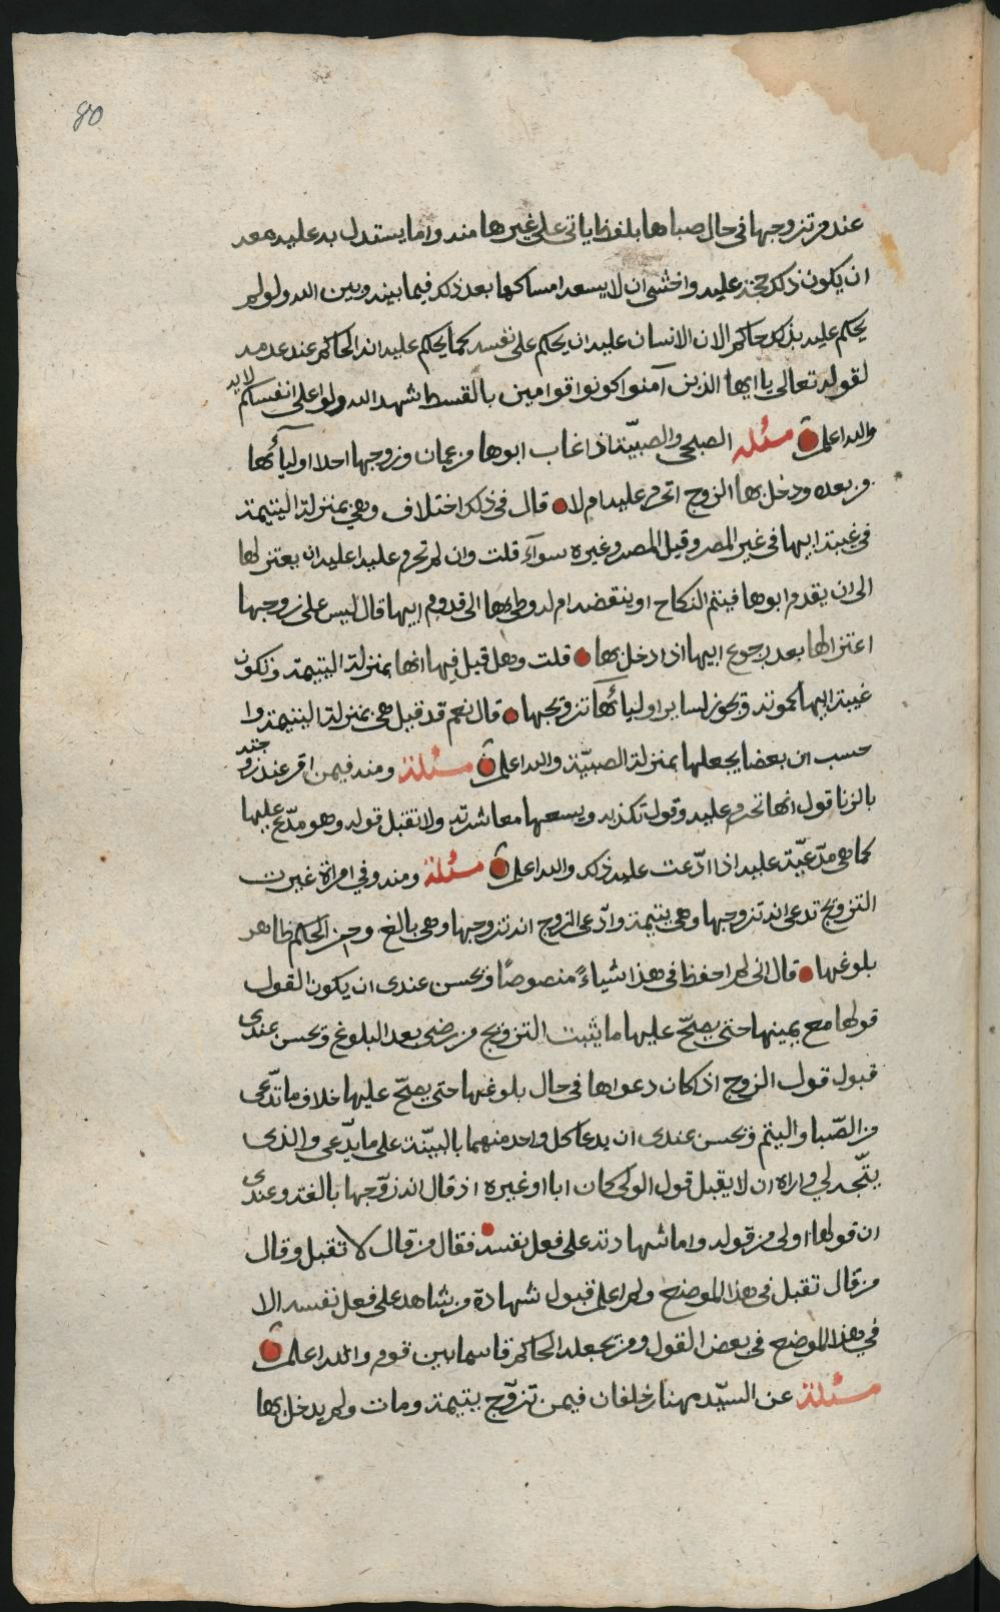 80
عنده من تزوجها في حال صباها بلفظ ياتي على غيرها منه واما يستدل به عليه معه
ان يكون ذلك حجة عليه واخشى ان لا يسعه امساكها بعد ذلك فيما بينه وبين الله ولو لم
يحكم عليه بذلك حاكم الان الانسان عليه ان يحكم على نفسه كما يحكم عليه اند الحاكم عند عدمه
لقوله تعالى يا ايها الذين آمنوا كونوا قوامين بالقسط شهد الله ولو على انفسكم لايه
والله اعلم مسئلة الصبي والصبيّة اذا غاب ابوها من عمان وزوجها احد اوليآئها
من بعده ودخل بها الزوج اتحرم عليه ام لا قال في ذلك اختلاف وهي بمنزلة اليتيمة
في غيبة ابيها في غير المصر وقيل المصر وغيره سوآء قلت وان لم تحرم عليه اعليه ان يعتزلها
الى ان يقدم ابوها فيتم النكاح او ينقضه ام له وطئها الى قدوم ابيها قال ليس على زوجها
اعتزالها بعد رجوع ابيها اذا دخل بها قلت وهل قيل فيها انها بمنزلة اليتيمة وتكون
غيبة ابيها كموته ويجوز لساير اوليائها تزويجها قال نعم قد قيل هي بمنزلة اليتيمة وا
حسب ان بعضا يجعلها بمنزلة الصبيّة والله اعلم مسئلة ومنه فيمن اقر عند زوجته
بالزنا قول انها تحرم عليه وقول تكذبه ويسعها معاشرته ولا تقبل قوله وهو مدّع عليها
كما هي مدّعيّة عليه اذا ادّعت عليه ذلك والله اعلم مسئلة ومنه وفي امراة غيرت
التزويج تدعي انه تزوجها وهي يتيمة وادّعى الزوج انه تزوجها وهي بالغ وحين الحكم ظاهر
بلوغها قال اني لم احفظ في هذا شياءً منصوصًا ويحسن عندي ان يكون القول
قولها مع يمينها حتى يصحّ عليها ما يثبت التزويج من رضى بعد البلوغ ويحسن عندي
قبول قول الزوج اذ كان دعواها في حال بلوغها حتى يصحّ عليها خلاف ما تدّعي
من الصّبا واليتم ويحسن عندي ان يدعا كل واحد منهما بالبيّنة على ما يدّعي والذي
يتّجه لي واراه ان لا يقبل قول الولي كان ابا او غيره اذ قال انه زوّجها بالغة وعندي
ان قولها اولى من قوله واما شهادته على فعل نفسه فقال من قال لا تقبل وقال
من قال تقبل في هذا الموضع ولم اعلم قبول شهادة من شاهد على فعل نفسه الا
في هذا الموضع في بعض القول ومن يجعله الحاكم قاسما بين قوم والله اعلم
مسئلة عن السيّد مهنا بن خلفان فيمن تزوّج يتيمة ومات ولم يدخل بها